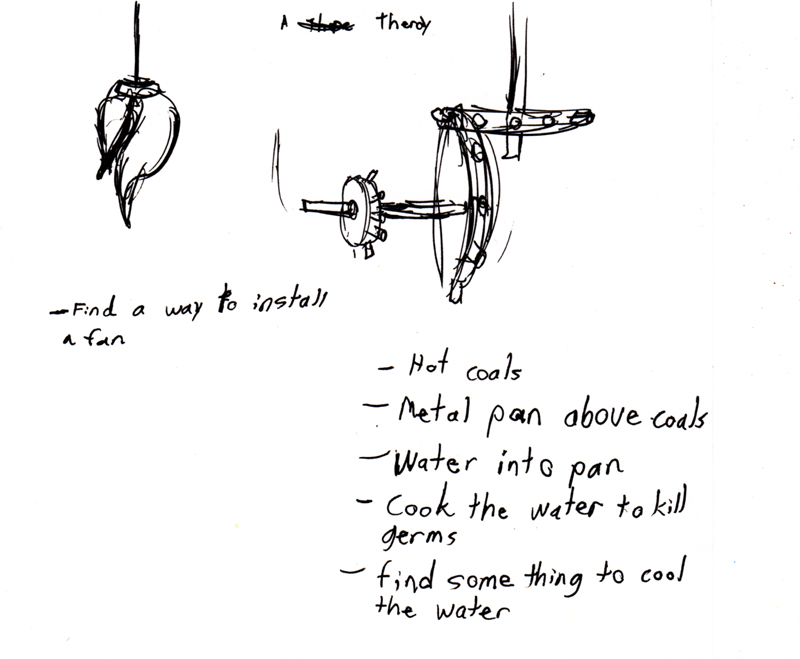 A theroy
- Find a way to install
a fan
- Hot coals
- Metal pan above coals
- Water into pan
- Cook the water to kill
germs
- find some thing to cool
the water